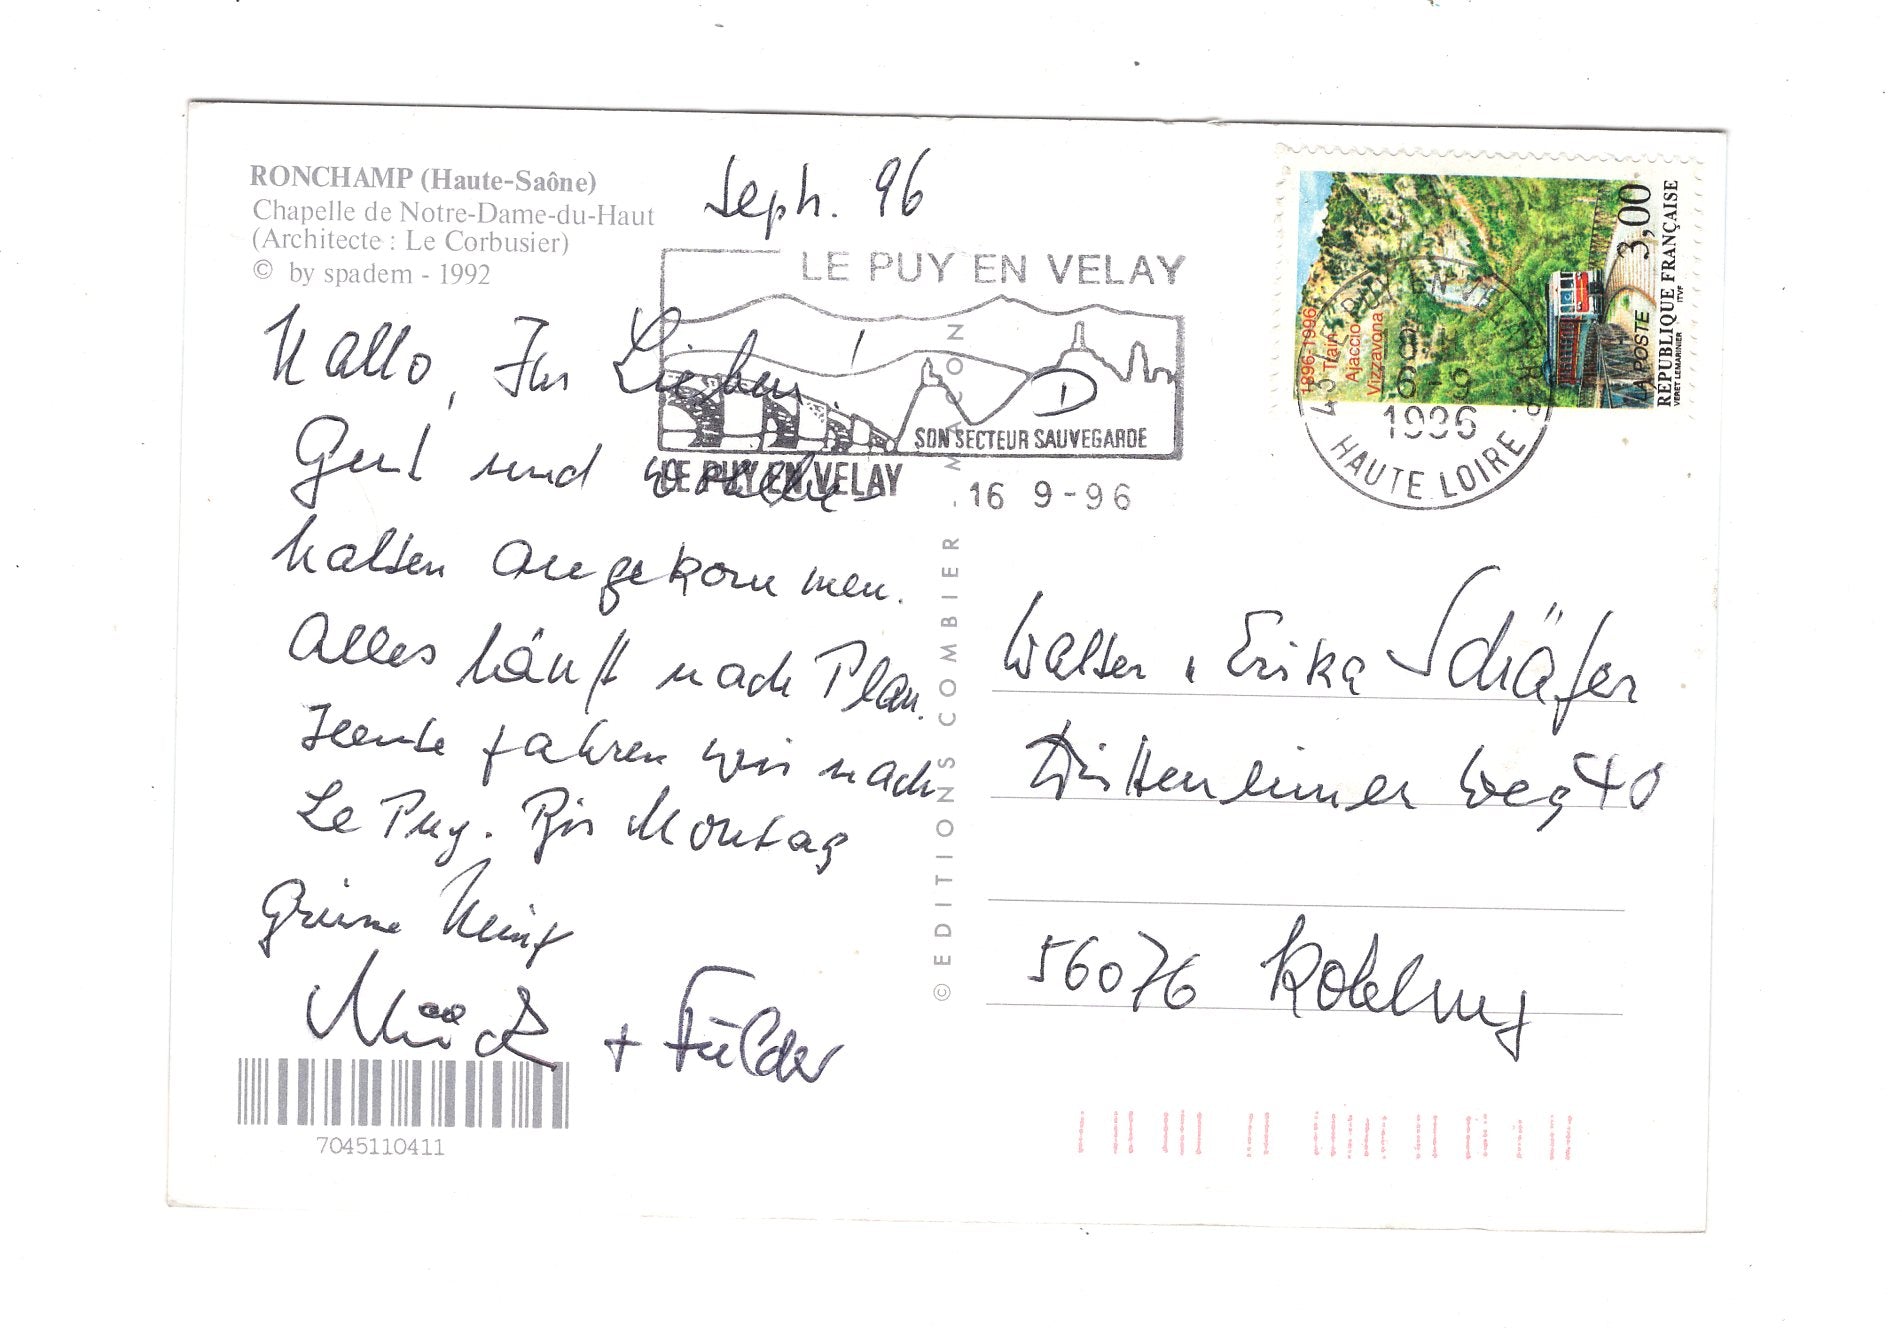 RONCHAMP (Haute-Saône)
Chapelle de Notre-Dame-du-Haut
(Architecte : Le Corbusier)
© by spadem - 1992
Seph. 96
Hallo, Ihr Lieben!
Gut und
halten angekommen.
Alles läuft nach Plan.
Heute fahren wir nach
Le Puy. Bis Montag
Grüne
+ Fulder
7045110411
© EDITIONS COMBIER - MACON
LE PUY EN VELAY
SON SECTEUR SAUVEGARDE
LE PUY EN VELAY
16 9-96
D
1896-1996
Train
Ajaccio
Vizzavona
3,00
LA POSTE
REPUBLIQUE FRANÇAISE
VERET LEMARINIER ITVF
43 LE PUY EN VELAY
16-9
1996
HAUTE LOIRE
Walter u Erika Schäfer
Weg 40
56076 Koblenz